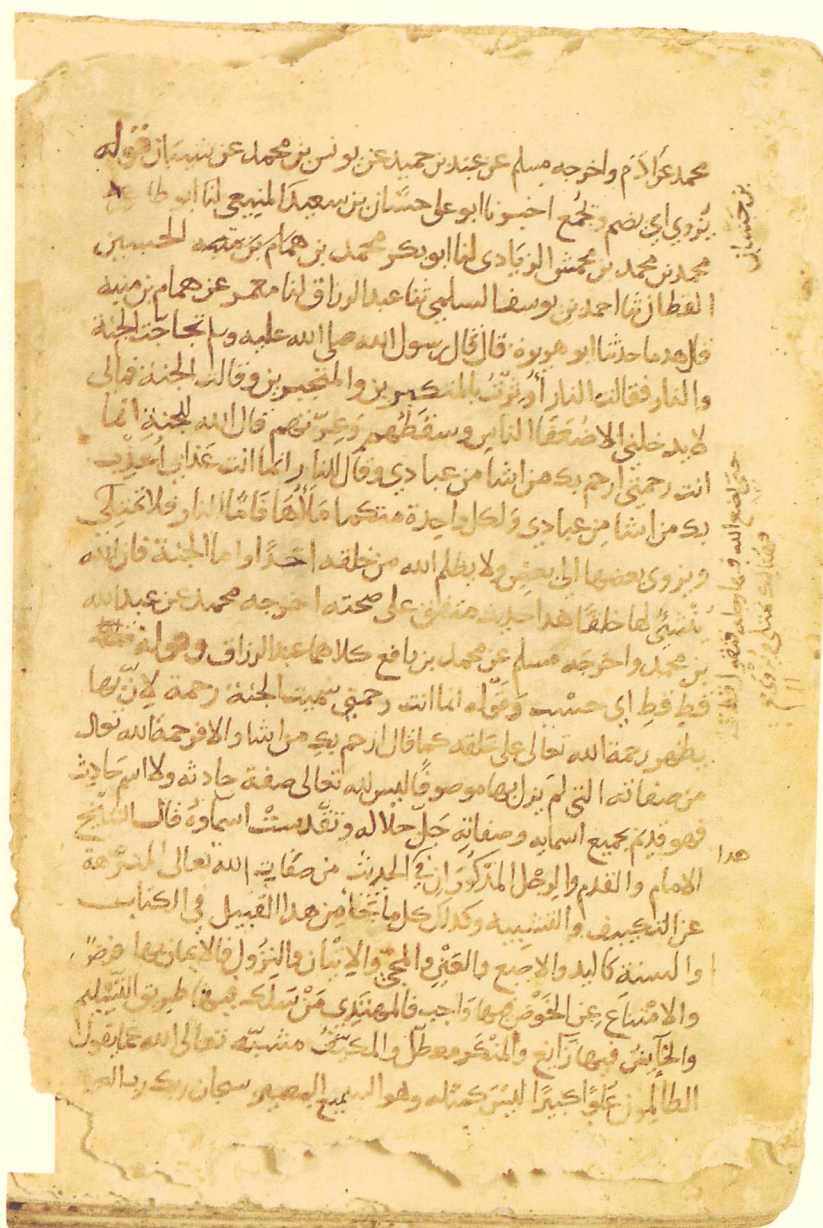 محمد عن ادم واخرجه مسلم عن عبد بن حميد عن يونس بن محمد عن شيبان قوله
يزوي اي يضم وتجمع اخبرنا ابو علي حسان بن سعيد المنيعي انا ابو طاهر
محمد بن محمد بن محمش الزيادي انا ابو بكر محمد بن الحسين
القطان ثنا احمد بن يوسف السلمي ثنا عبد الرزاق انا معمر عن همام بن منبه
قال هدا ما حدثنا ابو هريرة قال قال رسول الله صلى الله عليه وسلم تحاجت الجنة
والنار فقالت النار أُوثِرْتُ بالمتكبرين والمتجبرين وقالت الجنة فمالي
لا يدخلني الا ضُعَفَا الناس وسَقَطُهم وغِرَّتهم قال الله للجنة انما
انت رحمتي ارحم بك من اشا من عبادي وقال للنار انما انت عَذابي أُعذّب
بك من اشا من عبادي ولكل واحِدة منكما مَلْأُهَا فَامَّا النار فلا تمتلي
ويزوى بعضها الى بعض ولا يظلم الله من خلقه احَدًا واما الجنة فان الله
يُنْشِئُ لها خلقًا هدا حديث متفق على صحته اخرجه محمد عن عبد الله
بن محمد واخرجه مسلم عن محمد بن رافع كلاهما عبد الرزاق وقوله
قط قط اي حسْب وقوله انما انت رحمتي سميت الجنة رحمة لانّ بها
يظهر رحمة الله تعالى على خلقه كما قال ارحم بك من اشا والا فرحمة الله تعالى
من صفاته التي لم يزل بها موصوفًا ليس لله تعالى صفة حادثه ولا اسم حادث
فهو قديم بجميع اسمايه وصفاته جَلّ جلاله وتقَدسَتْ اسماوهُ قال الشيخ
الامام والقدم والرِجْل المذكُورَان في الحديث من صفات الله تعالى المنزّهة
عن التكييف والتشبيه وكذلك كل ما جَا مِن هدا القبيل في الكتاب
والسنة كاليد والاصبع والعَيْن والمجيّ والاتْيان والنزول فالايمان بها فرضٌ
والامْتناع عن الخَوْض فيها وَاجب فالمهتَدِى مَنْ سَلَك فيها طريق التَّسْليم
والخَآيضُ فيها زَايغ والمنْكر معطل والمكيّفُ مشبّه تعالى الله عما يقول
الظالمون عُلوًّا كبيرًا ليْسَ كمثله وهو السميع البصير سبحان ربك رب
بن حسان
هدا